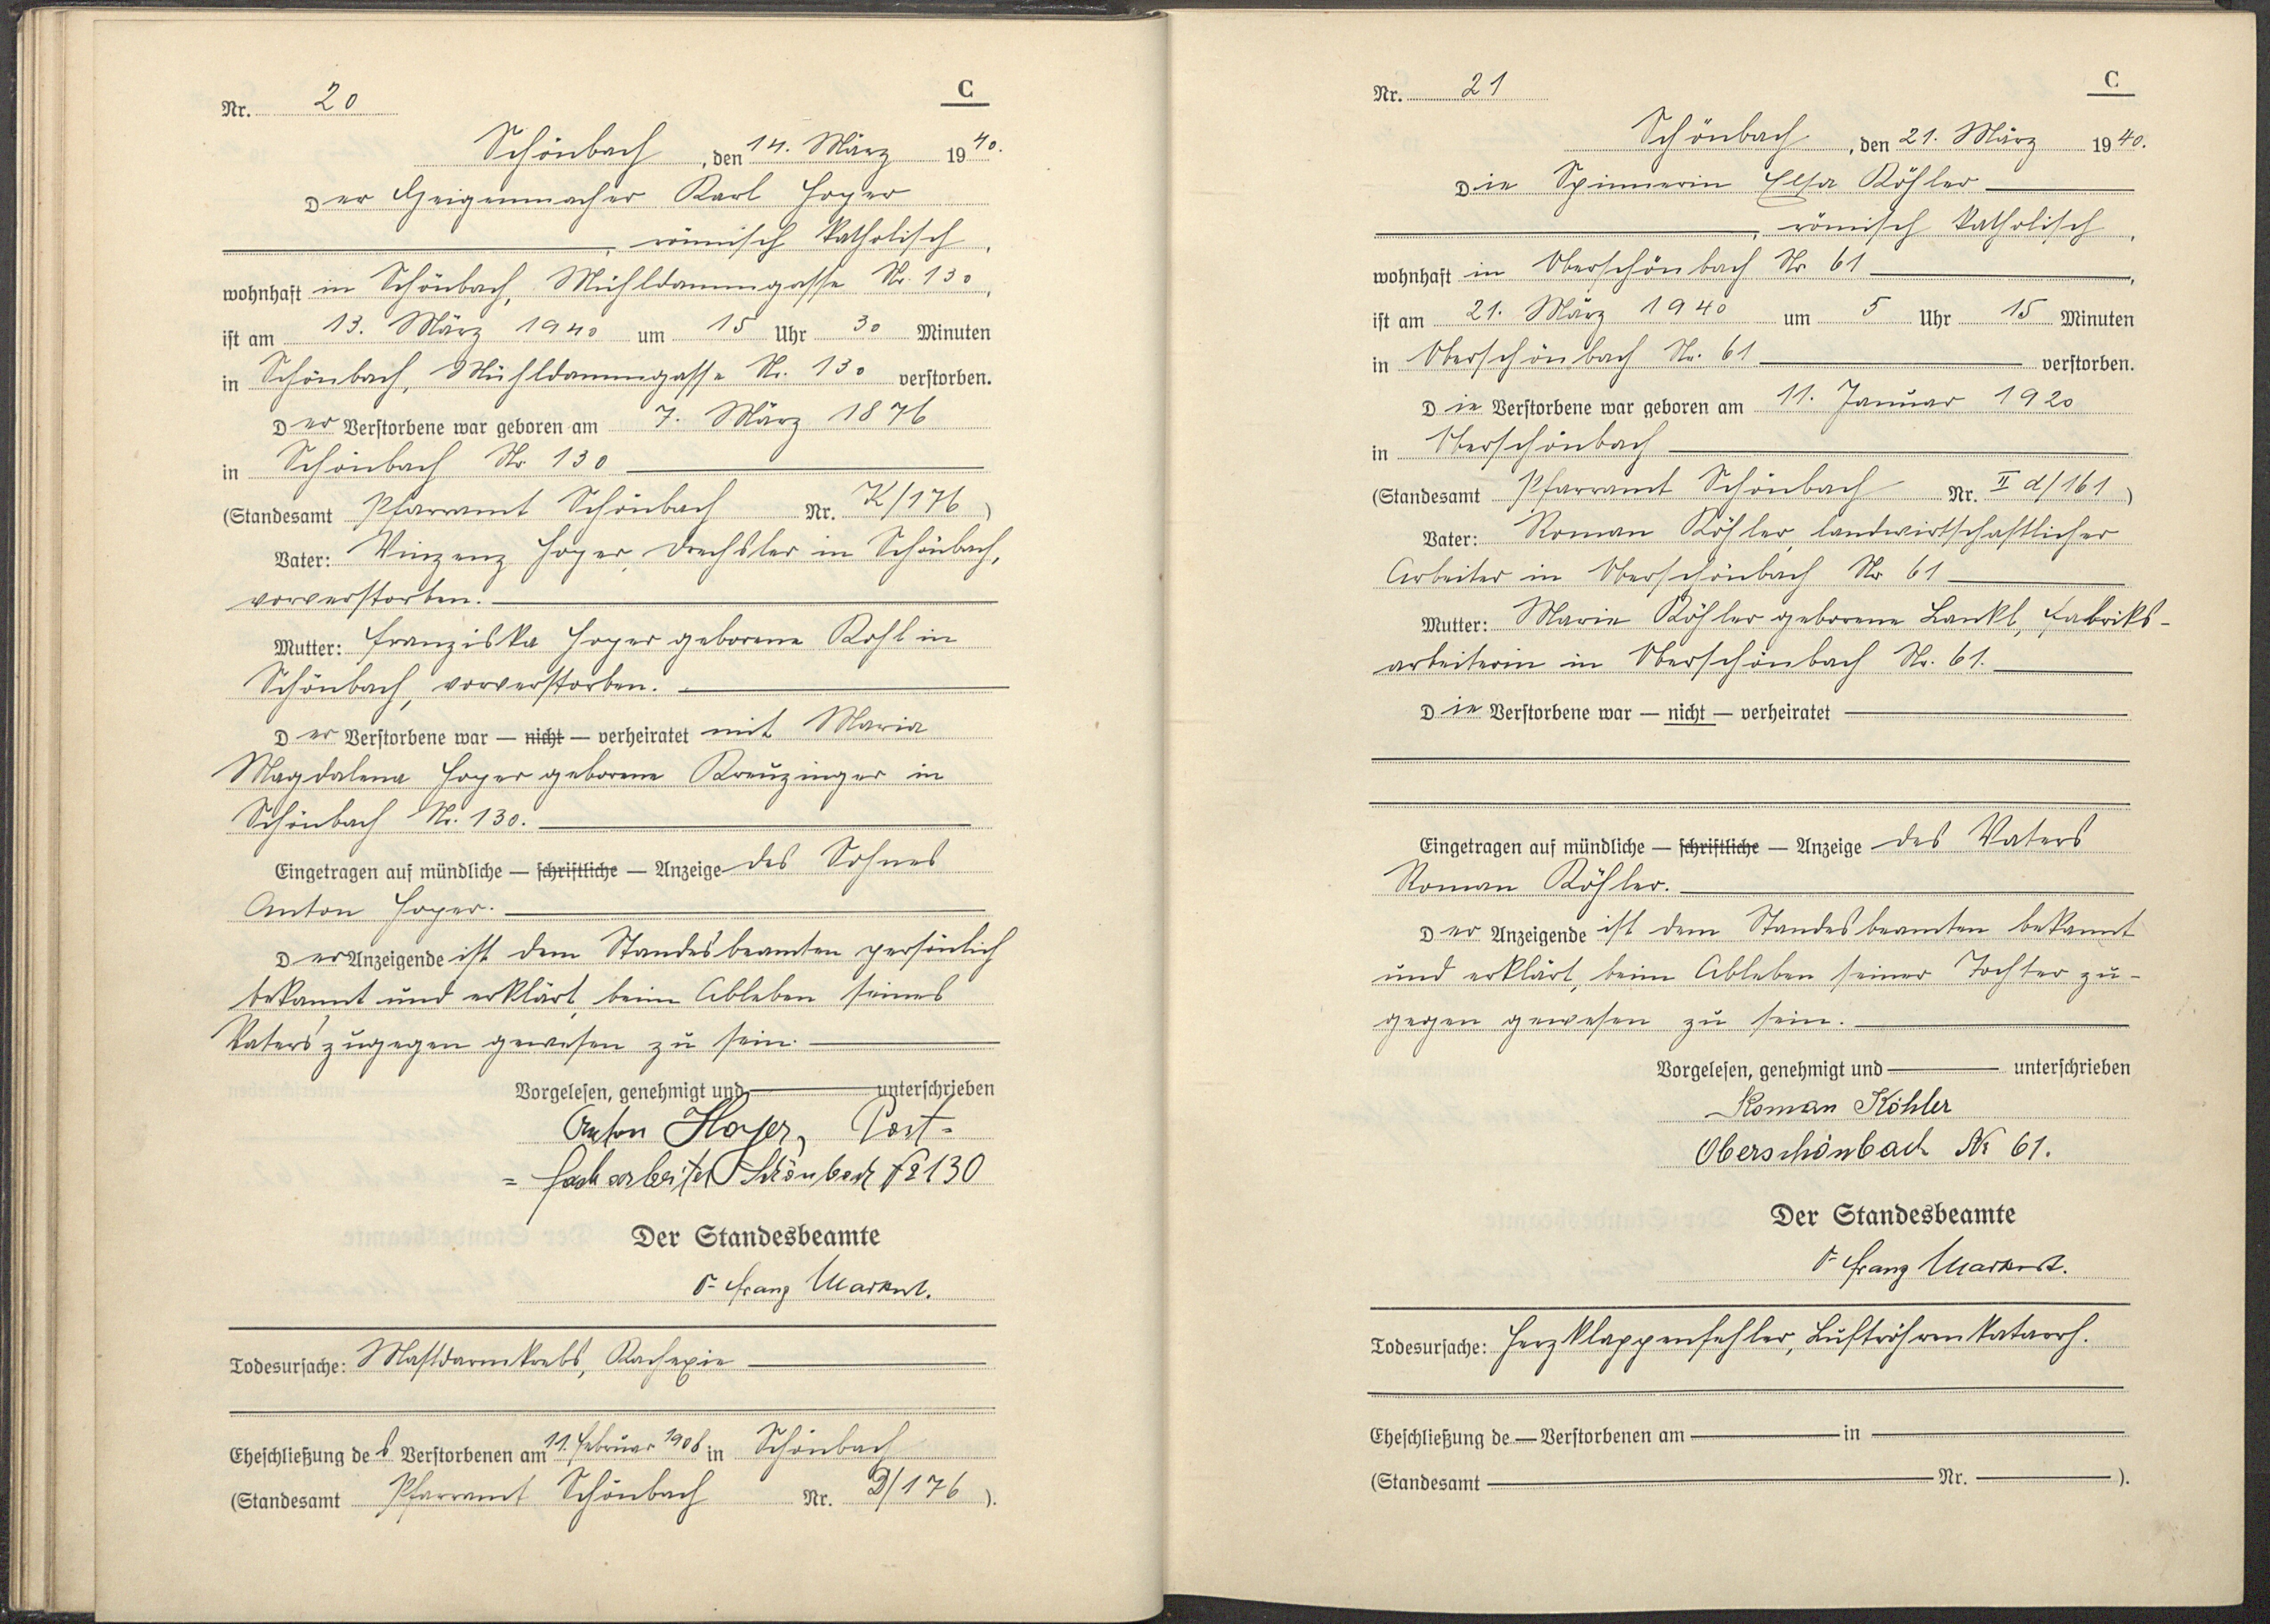 Nr. 20
C
Schönbach, den 14. März 1940.
Der Geigenmacher Karl Hoyer
, römisch katholisch,
wohnhaft in Schönbach, Mühldammgasse Nr. 130,
ist am 13. März 1940 um 15 Uhr 30 Minuten
in Schönbach, Mühldammgasse Nr. 130 verstorben.
Der Verstorbene war geboren am 7. März 1876
in Schönbach Nr. 130
(Standesamt Pfarramt Schönbach Nr. K/176)
Vater: Vinzenz Hoyer, Drechsler in Schönbach,
vorverstorben.
Mutter: Franziska Hoyer geborene Kohl in
Schönbach, vorverstorben.
Der Verstorbene war — nicht — verheiratet mit Maria
Magdalena Hoyer geborene Kreuzinger in
Schönbach Nr. 130.
Eingetragen auf mündliche — schriftliche — Anzeige des Sohnes
Anton Hoyer.
Der Anzeigende ist dem Standesbeamten persönlich
bekannt und erklärt, beim Ableben seines
Vaters zugegen gewesen zu sein.
Vorgelesen, genehmigt und unterschrieben
Anton Hoyer, Post-
= facharbeiter Schönbach № 130
Der Standesbeamte
Dr Franz Markert.
Todesursache: Mastdarmkrebs, Kachexie
Eheschließung des Verstorbenen am 11. Februar 1908 in Schönbach
(Standesamt Pfarramt Schönbach Nr. D/176).
Nr. 21
C
Schönbach, den 21. März 1940.
Die Spinnerin Elsa Köhler
, römisch katholisch,
wohnhaft in Oberschönbach Nr. 61,
ist am 21. März 1940 um 5 Uhr 15 Minuten
in Oberschönbach Nr. 61 verstorben.
Die Verstorbene war geboren am 11. Januar 1920
in Oberschönbach
(Standesamt Pfarramt Schönbach Nr. II d/161)
Vater: Roman Köhler, landwirtschaftlicher
Arbeiter in Oberschönbach Nr. 61
Mutter: Marie Köhler geborene Lankl, Fabriks-
arbeiterin in Oberschönbach Nr. 61.
Die Verstorbene war — nicht — verheiratet
Eingetragen auf mündliche — schriftliche — Anzeige des Vaters
Roman Köhler.
Der Anzeigende ist dem Standesbeamten bekannt
und erklärt, beim Ableben seiner Tochter zu-
gegen gewesen zu sein.
Vorgelesen, genehmigt und unterschrieben
Roman Köhler
Oberschönbach № 61.
Der Standesbeamte
Dr Franz Markert.
Todesursache: Herzklappenfehler, Luftröhrenkatarrh.
Eheschließung de — Verstorbenen am in
(Standesamt Nr. ).